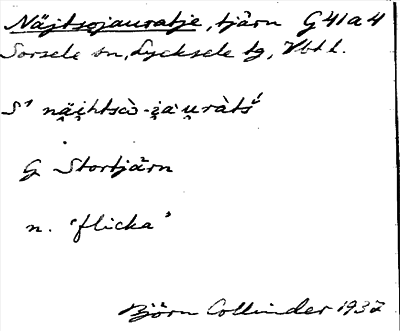 Näjtsojauratje, tjärn G 41 a 4
Sorsele sn, Lycksele lg, Vbt l.
S¹ nä̯i̯htsò-i̯au̯ràtś
G Stortjärn
n. 'flicka'
Björn Collinder 1937